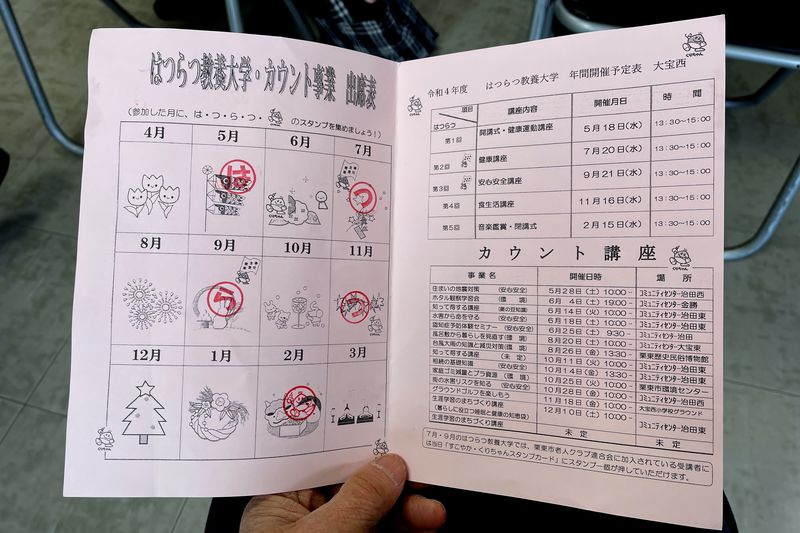 はつらつ教養大学・カウント事業 出席表
(参加した月に、は・つ・ら・つ・ のスタンプを集めましょう!)
4月 5月 6月 7月
は つ
8月 9月 10月 11月
ら つ
12月 1月 2月 3月
くりちゃん
くりちゃん
令和4年度 はつらつ教養大学 年間開催予定表 大宝西
項目 はつらつ 講座内容 開催月日 時間
第1回 開講式・健康運動講座 5月18日(水) 13:30~15:00
第2回 健康講座 7月20日(水) 13:30~15:00
第3回 安心安全講座 9月21日(水) 13:30~15:00
第4回 食生活講座 11月16日(水) 13:30~15:00
第5回 音楽鑑賞・閉講式 2月15日(水) 13:30~15:00
カウント講座
事業名 開催日時 場所
住まいの地震対策 (安心安全) 5月28日(土) 10:00- コミュニティセンター治田西
ホタル観察学習会 (環境) 6月4日(土) 19:00- コミュニティセンター金勝
知って得する講座 6月14日(火) 10:00- コミュニティセンター治田東
水害から命を守る (安心安全) 6月18日(土) 10:00- コミュニティセンター治田東
認知症予防体験セミナー (安心安全) 6月25日(土) 9:30- コミュニティセンター治田
風呂敷から暮らしを見直す(環境) 8月20日(土) 10:00- コミュニティセンター大宝東
台風大雨の知識と減災対策(環境) 8月26日(金) 13:30- 栗東歴史民俗博物館
知って得する講座 (未定) 10月11日(火) 10:00- コミュニティセンター治田東
相続の基礎知識 (安心安全) 10月14日(金) 13:30- コミュニティセンター治田東
家庭ゴミ減量とプラ資源 (環境) 10月25日(火) 10:00- 栗東市環境センター
街の水害リスクを知る (安心安全) 10月28日(金) 10:00- コミュニティセンター治田西
グラウンドゴルフを楽しもう 11月18日(金) 10:00- 大宝西小学校グラウンド
生涯学習のまちづくり講座 (暮らしに役立つ睡眠と健康の知恵袋) 12月10日(土) 10:00- コミュニティセンター治田東
生涯学習のまちづくり講座 未定 未定
7月・9月のはつらつ教養大学では、栗東市老人クラブ連合会に加入されている受講者には当日「すこやか・くりちゃんスタンプカード」にスタンプ一個が押していただけます。